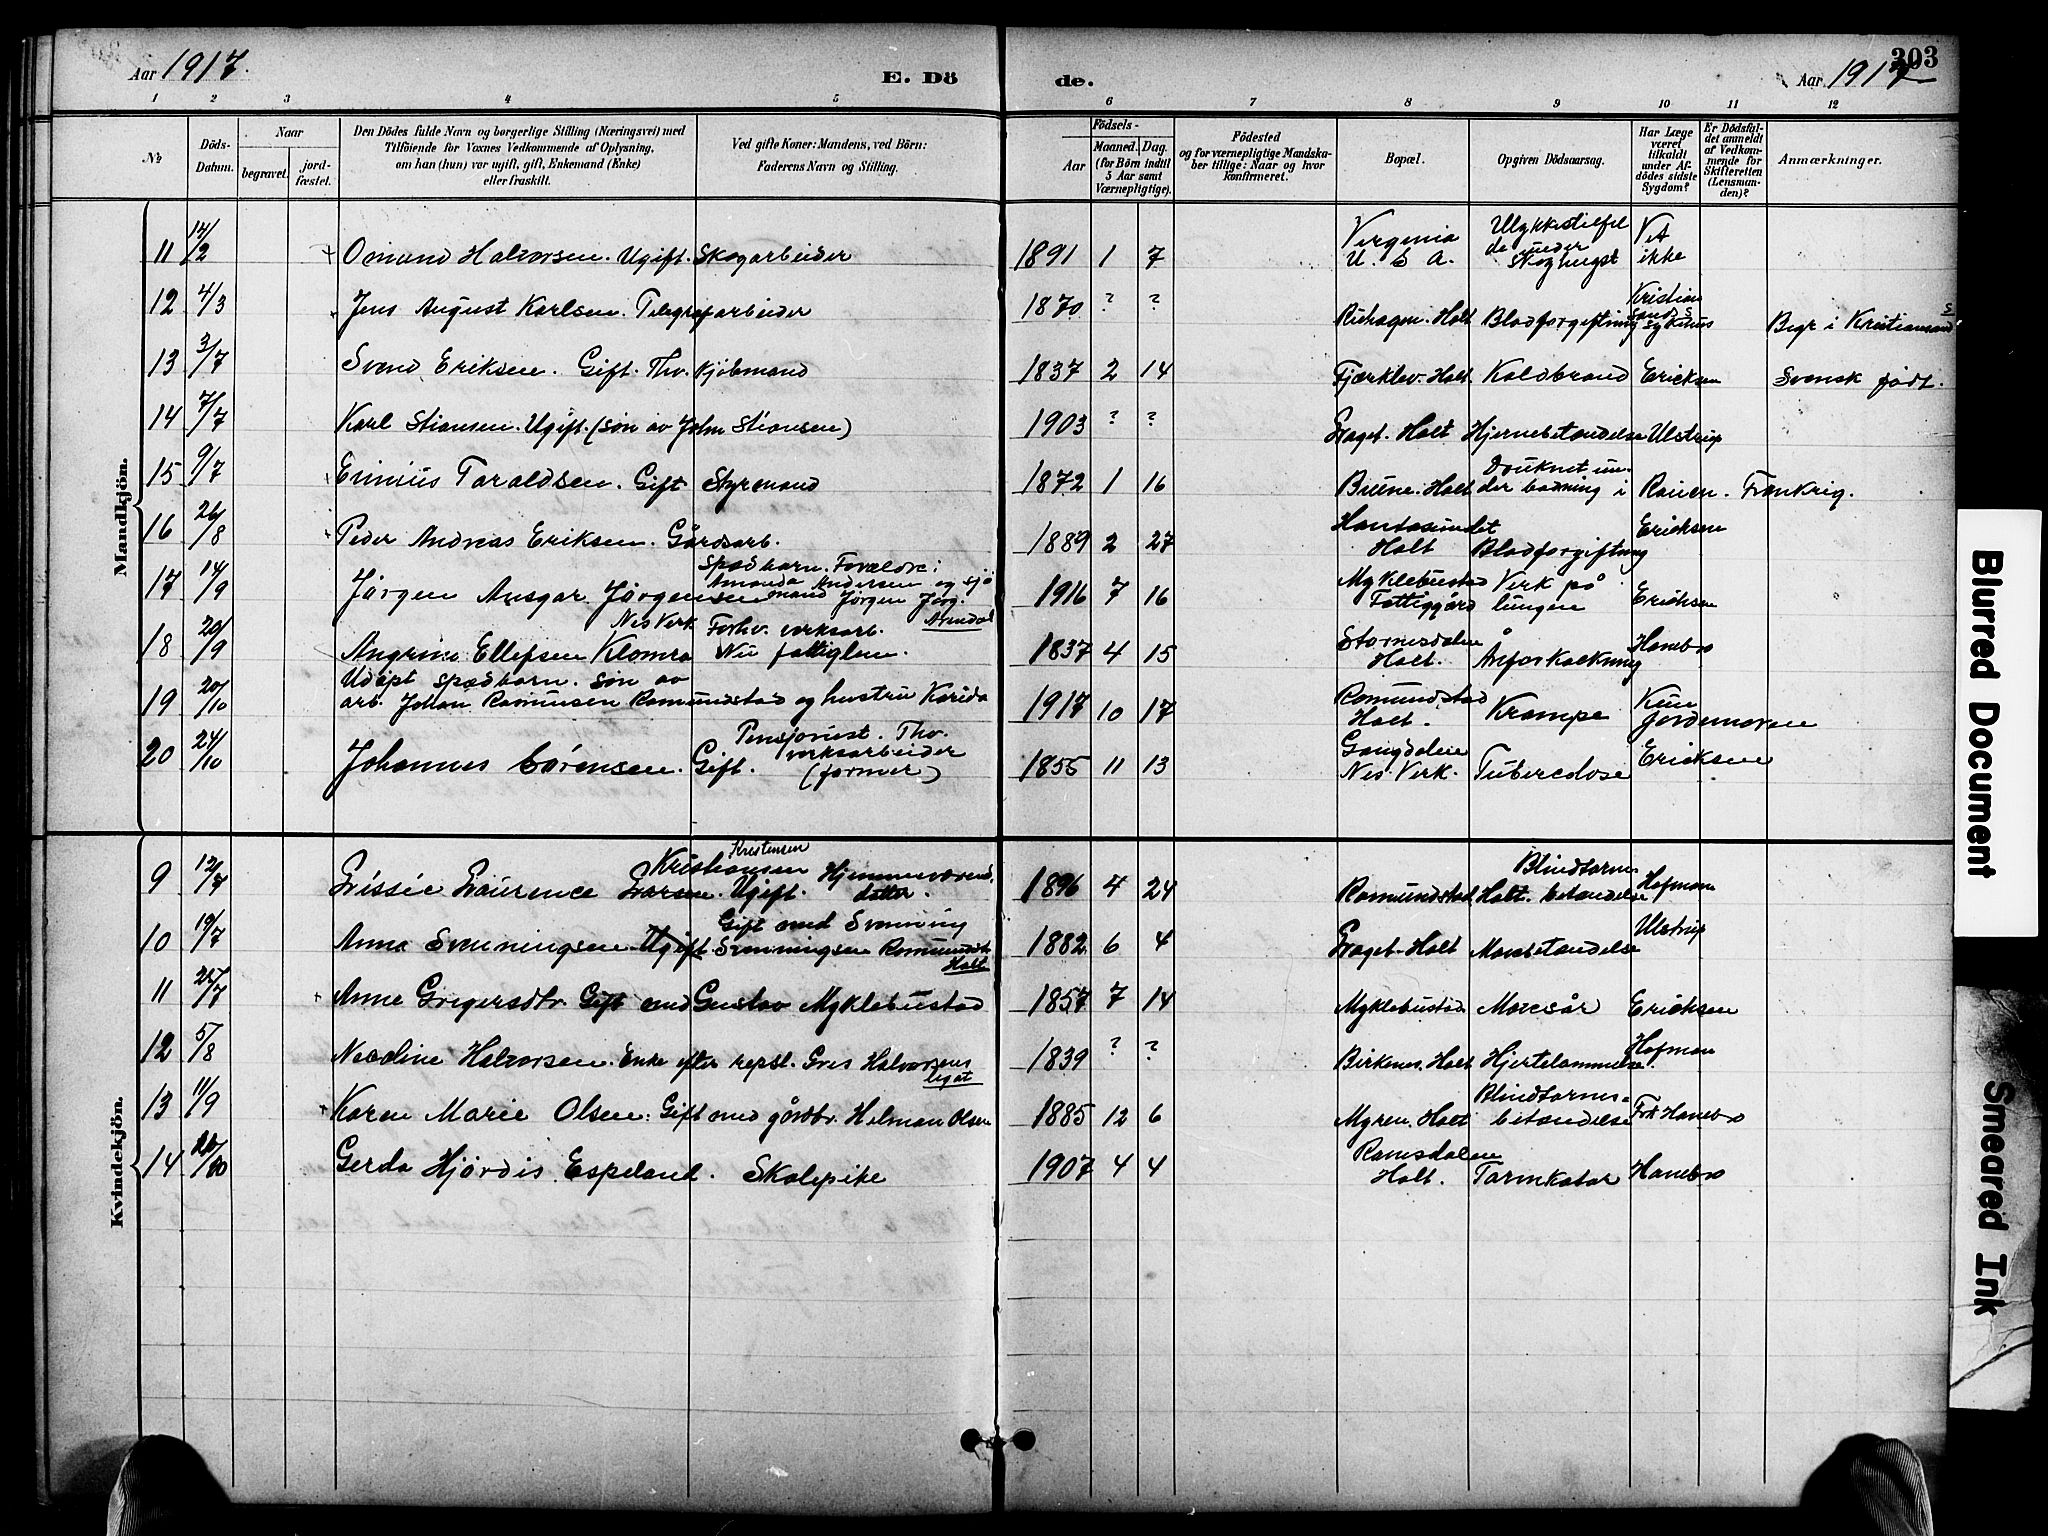 303
Aar 1917. E. Dö de. Aar 1917
1 2 3 4 5 6 7 8 9 10 11 12
№
Döds-Datum.
Naar
begravet.
jord-fæstet.
Den Dödes fulde Navn og borgerlige Stilling (Næringsvei) med
Tilföiende for Voxnes Vedkommende af Oplysning,
om han (hun) var ugift, gift, Enkemand (Enke)
eller fraskilt.
Ved gifte Koner: Mandens, ved Börn:
Faderens Navn og Stilling.
Födsels-
Aar
Maaned. Dag.
(for Börn indtil
5 Aar samt
Værnepligtige).
Födested
og for værnepligtige Mandska-
ber tillige: Naar og hvor
konfirmeret.
Bopæl.
Opgiven Dödsaarsag.
Har Læge
været
tilkaldt
under Af-
dödes sidste
Sygdom?
Er Dödsfal-
det anmeldt
af Vedkom-
mende for
Skifteretten
(Lensman-
den)?
Anmærkninger.
Mandkjön.
11 14/2 Omund Halvorsen. Ugift. Skogarbeider 1891 1 7 Virginia U. S. A. Vet ikke
12 4/3 Jens August Karlsen. Telegrafarbeider 1870 ? ? Holt Blodforgiftning Kristiansands sykehus Begr i Kristiansand S
13 3/7 Svend Eriksen. Gift. Fhv. Kjøbmand 1837 2 14 Fjærkler. Holt Koldbrand Ericksen Svensk født.
14 7/7 Karl Stiansen. Ugift. (søn av John Stiansen) 1903 ? ? Laget. Holt Hjernebetændelse Ulstrup
15 9/7 Emius Taraldsen. Gift Styrmand 1872 1 16 Brune. Holt Druknet un-
der badning i Rouen. Frankrig.
16 26/8 Peder Andreas Eriksen. Gårdsarb. 1889 2 27 Hantosundet Holt Blodforgiftning Ericksen
17 14/9 Jørgen Ansgar Jørgensen Spædbarn. Forældre: Amanda Andersen og sjømand Jørgen Jørg. Arendal 1916 7 16 Myklebustad Fattiggård Verk på lungen Ericksen
18 20/9 Angrim Ellefsen Klomra Nes Verk Forhv. verksarb. Nu fattiglem. 1837 4 15 Stornesdalen Holt. Åreforkalkning Hanebro
19 20/10 Udøpt spædbarn. søn av
arb. Johan Rasmussen Romundstad og hustru Karida 1917 10 17 Romundstad Holt. Krampe Kun Jordmoren
20 24/10 Johannes Sørensen. Gift. Pensjonist. Fhv. verksarbeider (former) 1855 11 13 Gangdalen Nes Verk. Tuberculose Ericksen
Kvindekjön.
9 12/7 Lissie Laurence Larsen. Kristiansen Kristensen Ugift. Hjemmeværend. datter. 1896 4 24 Romundstad Holt. Blindtarms-
betændelse Hofman
10 19/7 Anna Svenningsen Ugift. Gift med Svenning Svenningsen Romundst. Holt 1882 6 4 Laget. Holt Mavebetændelse Ulstrup
11 25/7 Anne Gregersdtr. Gift med Gustav Myklebustad 1857 7 14 Myklebustad Mavesår Ericksen
12 5/8 Nicoline Halvorsen. Enke efter repsl. Halvorsens legat 1839 ? ? Birkenes. Holt Hjertelammelse Hofman
13 11/9 Karen Marie Olsen. Gift med gårdbr. Helman Olsen 1885 12 6 Myren. Holt Blindtarms-
betændelse Frk Hanebro
14 Gerda Hjørdis Espeland. Skolepike 1907 4 4 Ramsdalen Holt. Tarmkatar Hanebro
Blurred Document
Smeared Ink